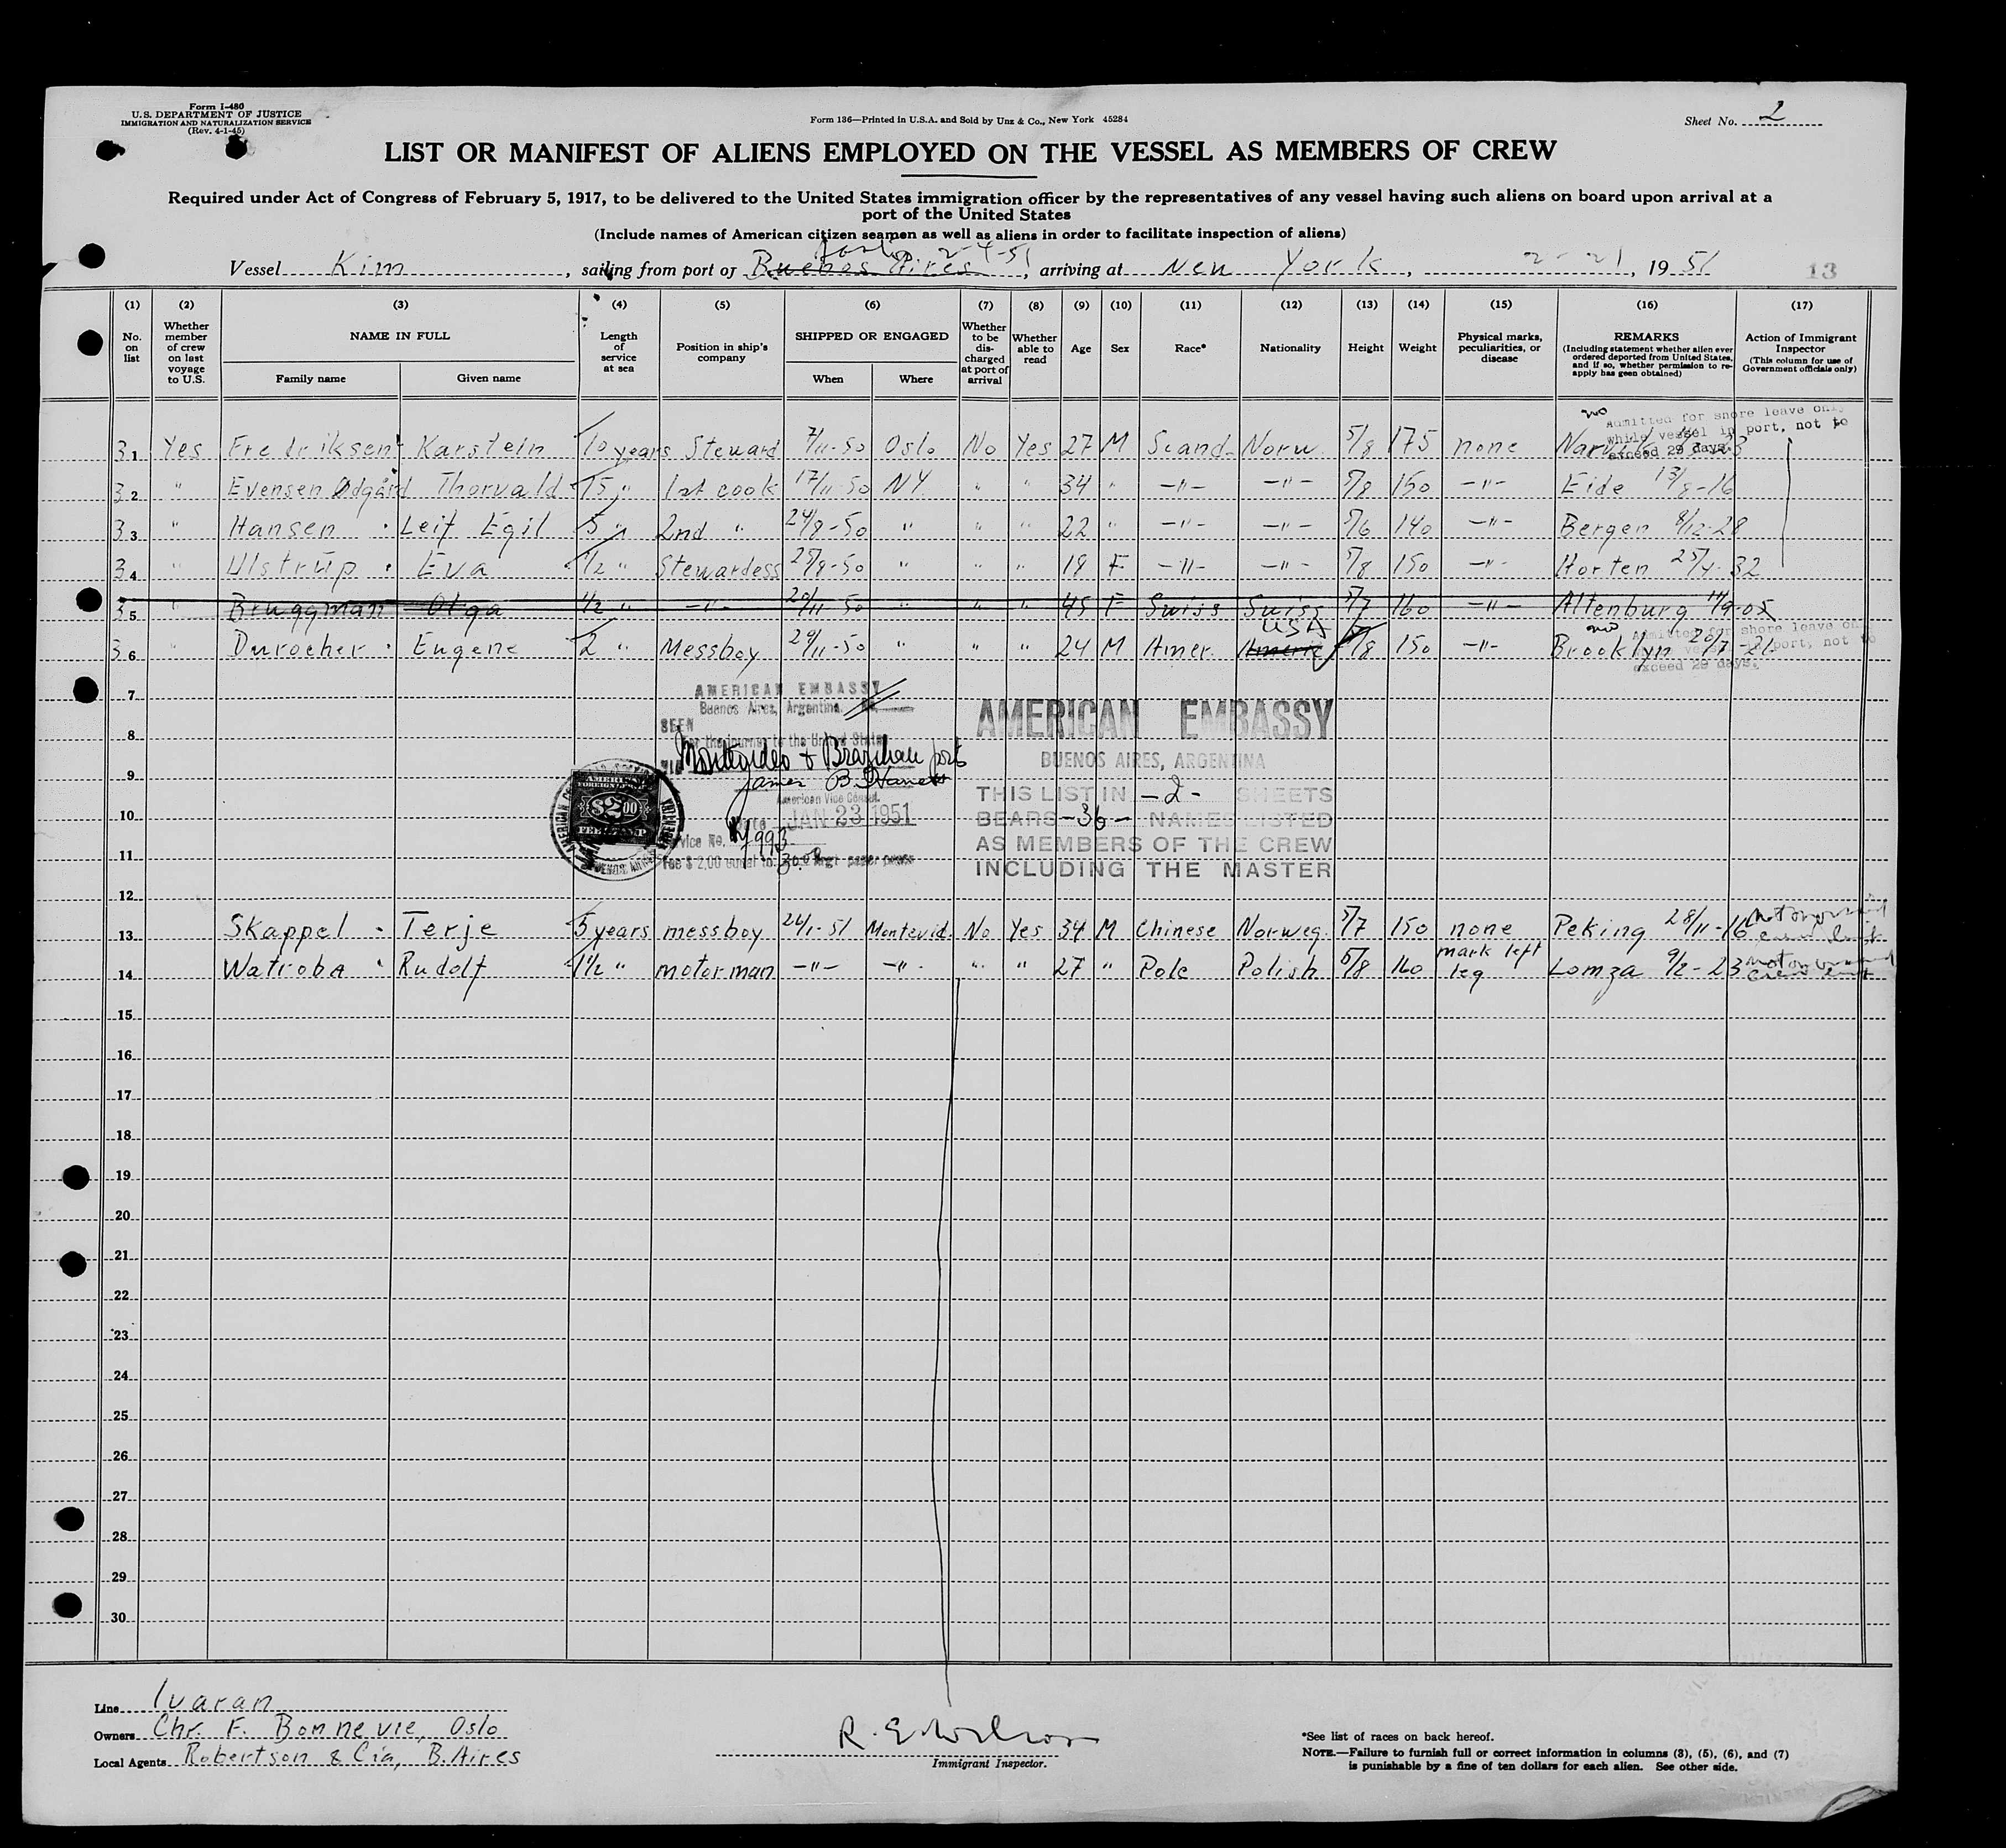 Form I-480
U.S. DEPARTMENT OF JUSTICE
IMMIGRATION AND NATURALIZATION SERVICE
(Rev. 4-1-45)
Form 136—Printed in U.S.A. and Sold by Unz & Co., New York 45284
Sheet No. 2
LIST OR MANIFEST OF ALIENS EMPLOYED ON THE VESSEL AS MEMBERS OF CREW
Required under Act of Congress of February 5, 1917, to be delivered to the United States immigration officer by the representatives of any vessel having such aliens on board upon arrival at a
port of the United States
(Include names of American citizen seamen as well as aliens in order to facilitate inspection of aliens)
2-4-51
Vessel Kim, sailing from port of Buenos Aires, arriving at New York, 2-21, 1951
13
(1) (2) (3) (4) (5) (6) (7) (8) (9) (10) (11) (12) (13) (14) (15) (16) (17)
No. on list
Whether member of crew on last voyage to U.S.
NAME IN FULL
Family name Given name
Length of service at sea
Position in ship's company
SHIPPED OR ENGAGED
When Where
Whether to be discharged at port of arrival
Whether able to read
Age
Sex
Race*
Nationality
Height
Weight
Physical marks, peculiarities, or disease
REMARKS
(Including statement whether alien ever ordered deported from United States, and if so, whether permission to re-apply has geen obtained)
Action of Immigrant Inspector
(This column for use of Government officials only)
no Admitted for shore leave only
while vessel in port, not to
exceed 29 days.
31 Yes Fredriksen Karstein 10 years Steward 7/11-50 Oslo No Yes 27 M Scand- Norw. 5/8 175 none
32 " Evensen Ødgård Thorvald 15 " 1st cook 17/11-50 NY. " " 34 " -"- -"- 5/8 150 -"- Eide 13/8-16
33 " Hansen Leif Egil 5 " 2nd " 24/8-50 " " " 22 " -"- -"- 5/6 140 -"- Bergen 8/12-28
34 " Ulstrup Eva 1/2 " Stewardess 25/8-50 " " " 18 F -"- -"- 5/8 150 -"- Horten 25/4-32
35 " Bruggman Olga 1/2 " -"- 29/11-50 " " " 45 F Swiss Suiss 5/7 160 -"- Altenburg 11/9-05
USA
36 " Durocher Eugene 2 " Messboy 29/11-50 " " " 24 M Amer. Americ 5/8 150 -"- Brooklyn 20/7-26
no Admitted for shore leave only
port, not to
exceed 29 days.
7
AMERICAN EMBASSY
Buenos Aires, Argentina.
SEEN
8
For the journey to the United States
VIA Montevideo + Brazilian ports
9
James B.
American Vice Consul.
10
Date JAN 23 1951
Service No. 993
11
Fee $ 2,00 equal to 30.00 Argt. paper pesos
AMERICAN FOREIGN SERVICE
$2.00
FEE STAMP
AMERICAN EMBASSY
BUENOS AIRES, ARGENTINA
THIS LIST IN -2- SHEETS
BEARS -36- NAMES LISTED
AS MEMBERS OF THE CREW
INCLUDING THE MASTER
12
13 Skappel Terje 5 years messboy 24/1-51 Montevid. No Yes 34 M Chinese Norweg. 5/7 150 none Peking 28/11-16
14 Watroba Rudolf 1 1/2 " motorman -"- -"- " " 27 " Pole Polish 5/8 160 mark left leg Lomza 9/2-23
15
16
17
18
19
20
21
22
23
24
25
26
27
28
29
30
Line Ivaran
Owners Chr. F. Bonnevie, Oslo
Local Agents Robertson & Cia, B. Aires
R. E. Wilson
Immigrant Inspector.
*See list of races on back hereof.
NOTE.—Failure to furnish full or correct information in columns (3), (5), (6), and (7)
is punishable by a fine of ten dollars for each alien. See other side.